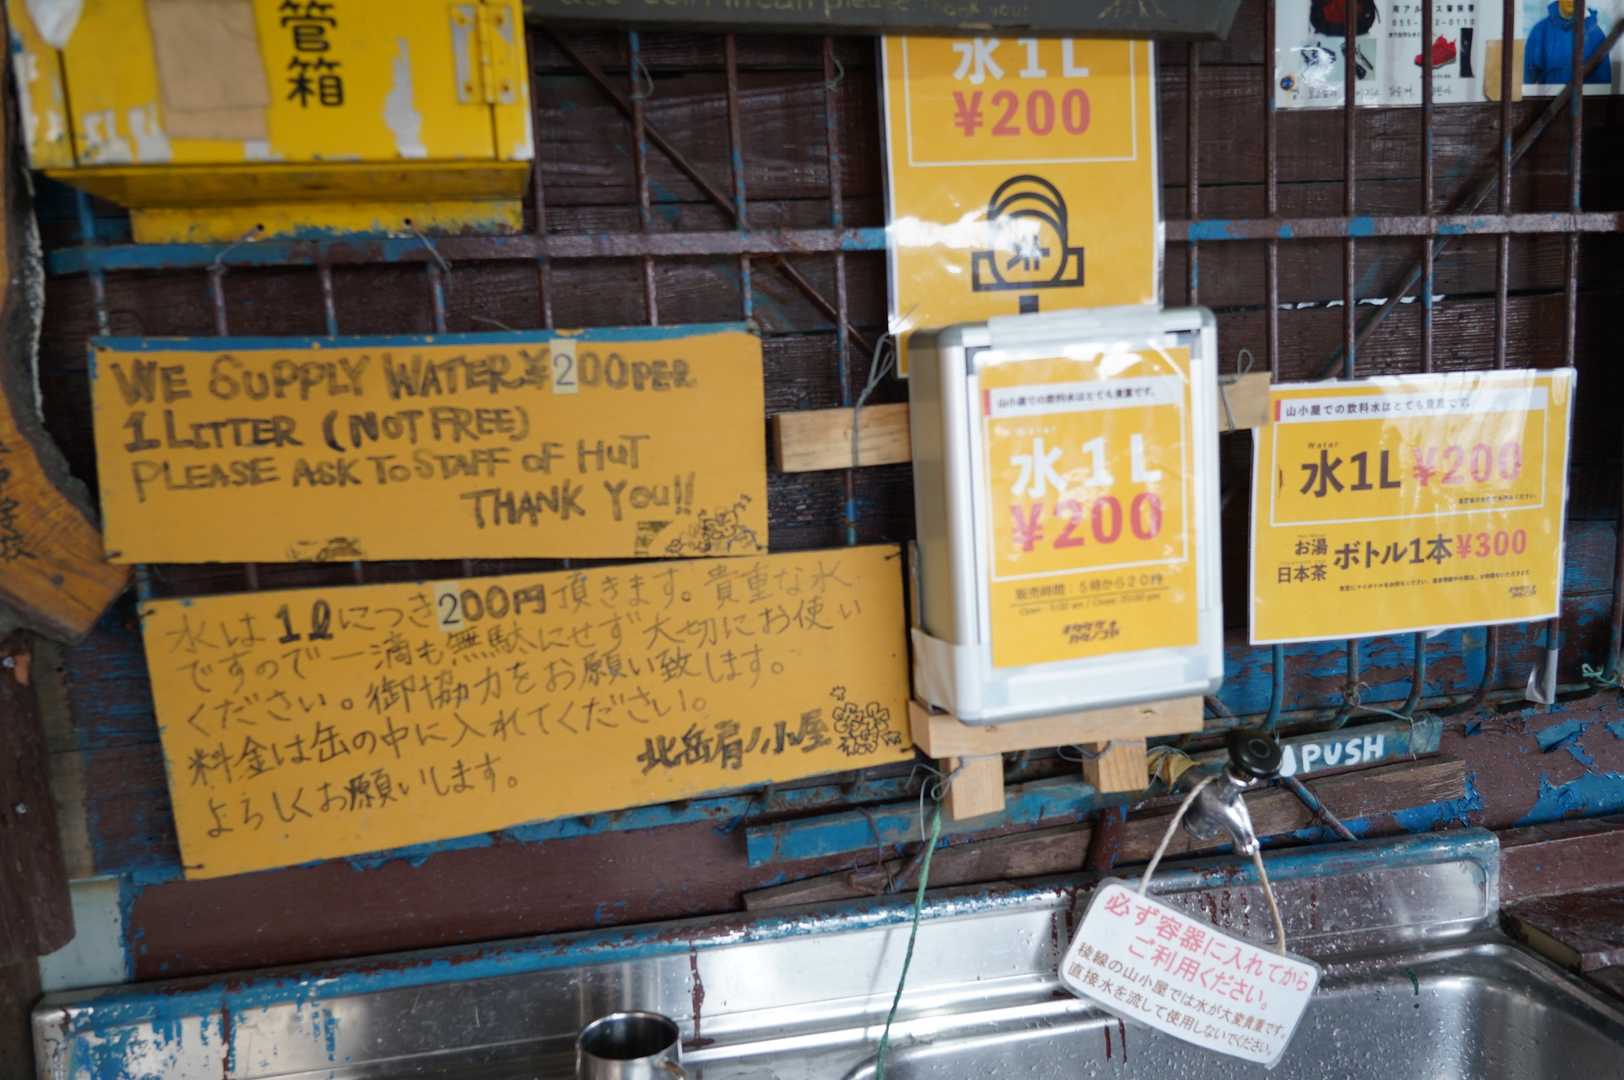 管
箱
水1L
¥200
WE SUPPLY WATER ¥200 PER
1 LITTER (NOT FREE)
PLEASE ASK TO STAFF OF HUT
THANK YOU!!
水は1ℓにつき200円頂きます。貴重な水
ですので一滴も無駄にせず大切にお使い
ください。御協力をお願い致します。
料金は缶の中に入れてください。
よろしくお願いします。
北岳肩ノ小屋
山小屋での飲料水はとても貴重です。
Water
水1L
¥200
販売時間：5時から20時
Open : 5:00 am / Close : 20:00 pm
山小屋での飲料水はとても貴重です。
Water
水1L ¥200
お湯
日本茶
ボトル1本 ¥300
PUSH
必ず容器に入れてから
ご利用ください。
稜線の山小屋では水が大変貴重です。
直接水を流して使用しないでください。